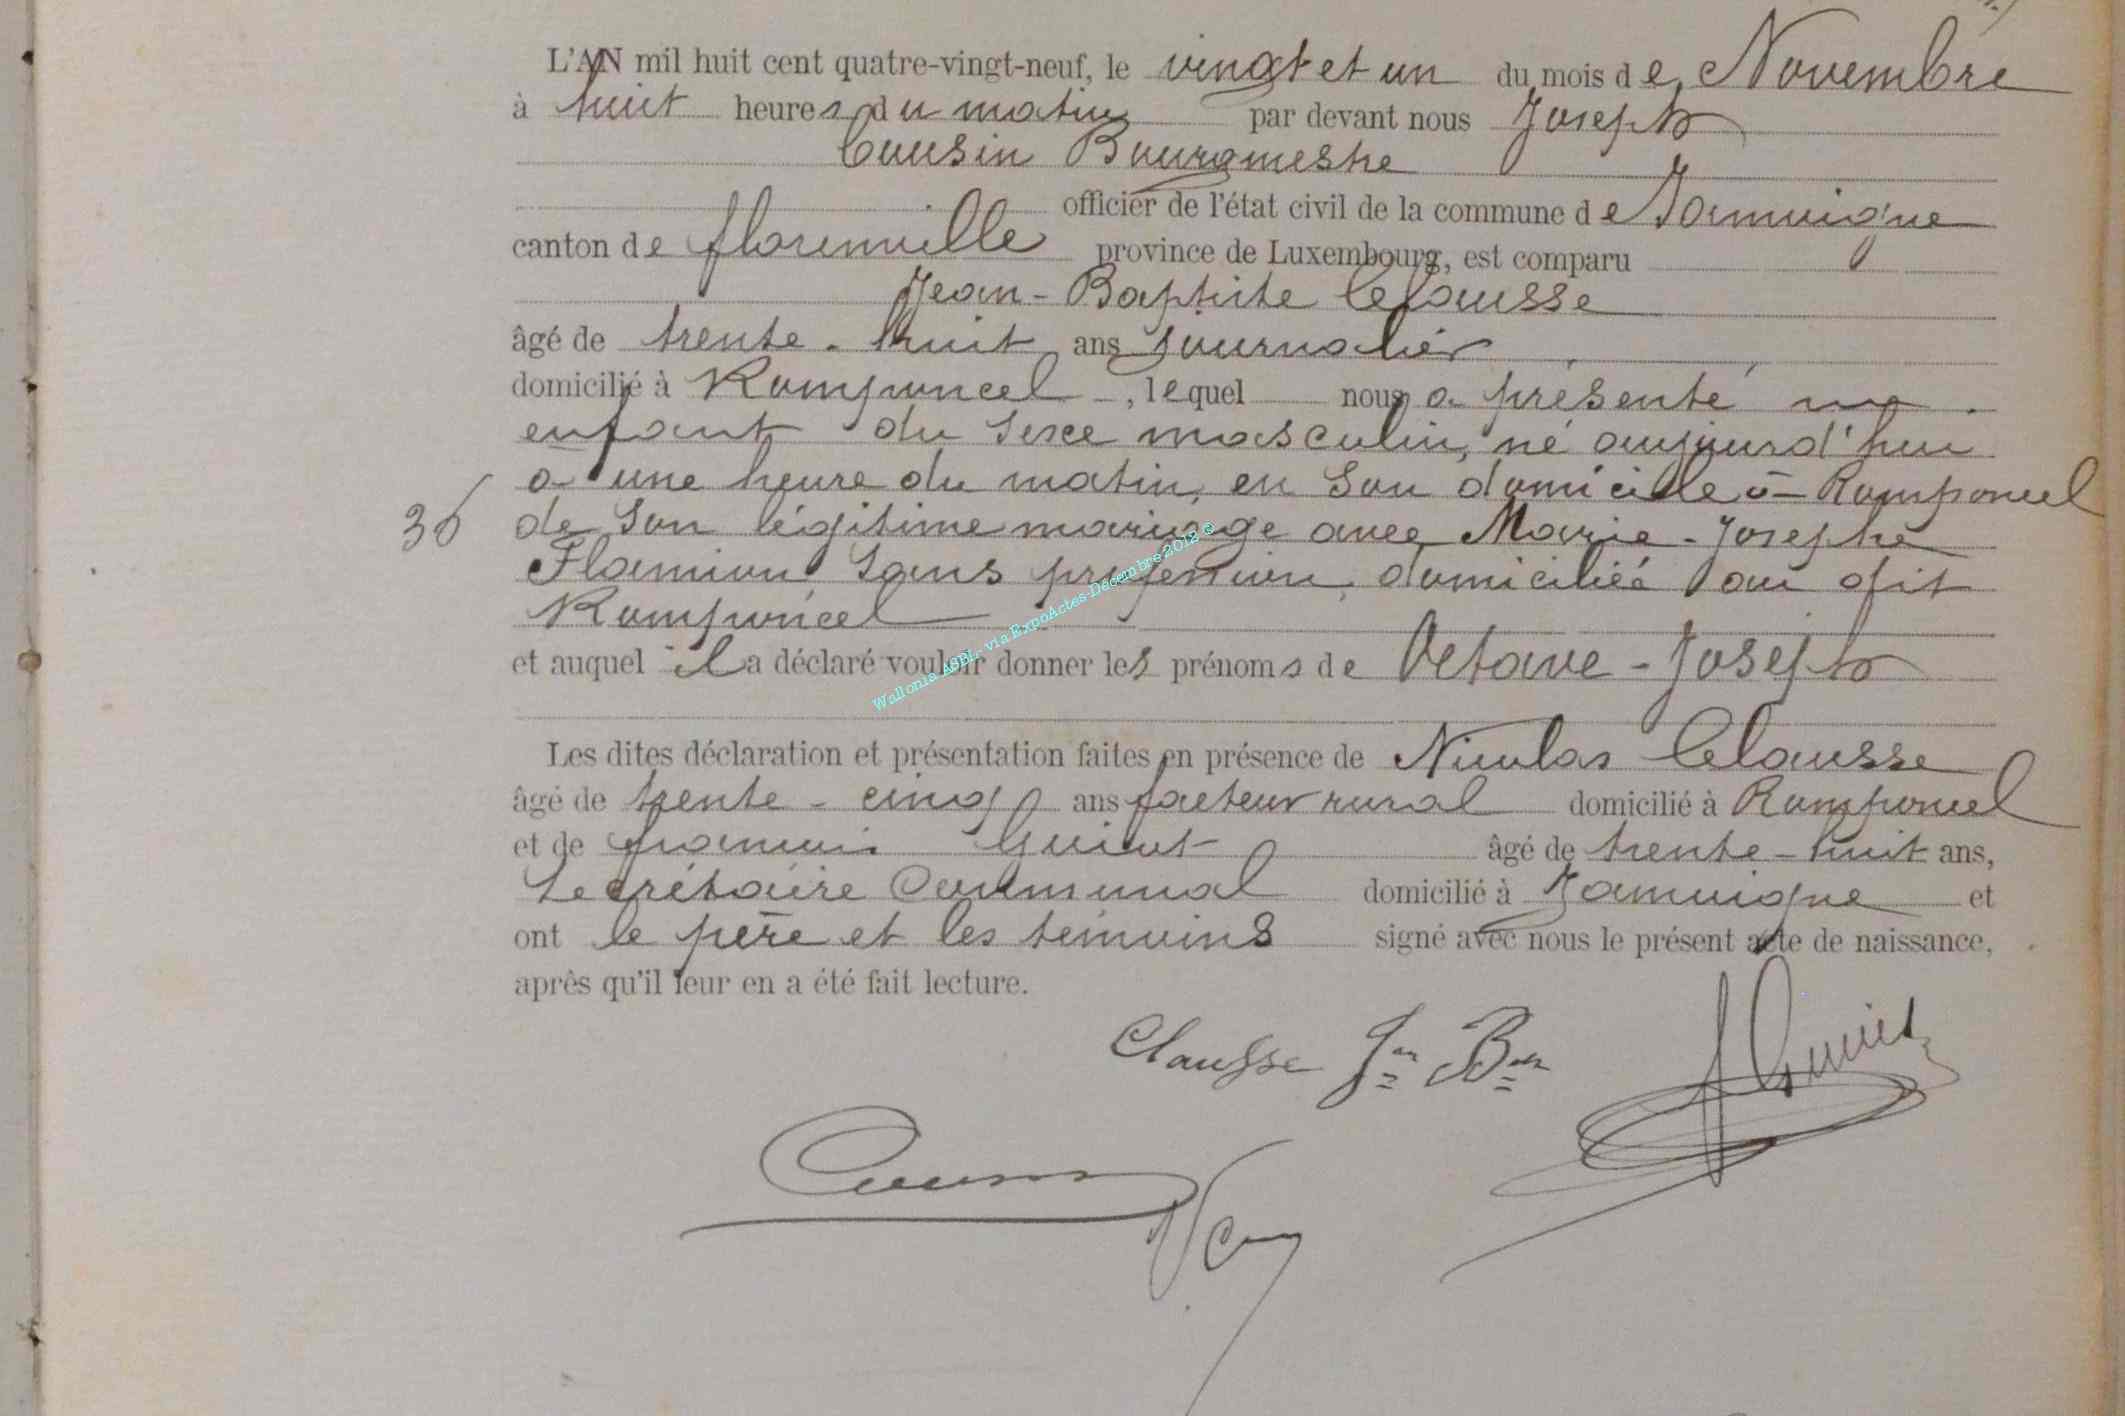 L'AN mil huit cent quatre-vingt-neuf, le vingt et un du mois de Novembre
à huit heures du matin par devant nous Joseph
Cousin Bourgmestre
officier de l'état civil de la commune de Jamoigne
canton de florenville province de Luxembourg, est comparu
Jean-Baptiste Clausse
âgé de trente-huit ans journalier
domicilié à Romponcel, lequel nous a présenté un
enfant du sexe masculin, né aujourd'hui
à une heure du matin, en son domicile à Romponcel
36 de son légitime mariage avec Marie-Josephe
Flamion sans profession, domiciliée au dit
Romponcel
et auquel il a déclaré vouloir donner les prénoms de Octave-Joseph
Les dites déclaration et présentation faites en présence de Nicolas Clausse
âgé de trente-cinq ans facteur rural domicilié à Romponcel
et de françois Guiot âgé de trente-huit ans,
Secrétaire Communal domicilié à Jamoigne et
ont le père et les témoins signé avec nous le présent acte de naissance,
après qu'il leur en a été fait lecture.
Clausse Jn Bn
f Guiot
Cousin
Wallonia ASBL - via ExpoActes-Décembre 2012 ©